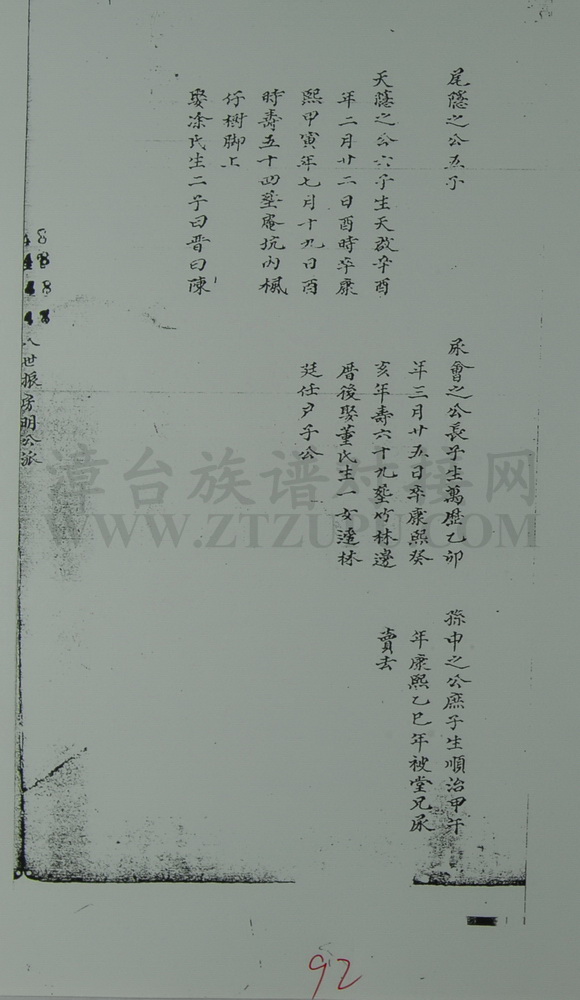 尾隱之公五子
天隱之公六子生天啟辛酉
年二月廿二日酉時卒康
熙甲寅年七月十九日酉
時壽五十四塟庵坑內楓
仔樹脚上
娶凃氏生二子曰晋曰陳
尿會之公長子生萬曆乙卯
年三月廿五日卒康熙癸
亥年壽六十九塟竹林邊
曆後娶董氏生一女適林
廷任户子公
孫申之公庶子生順治甲午
年康熙乙巳年被堂兄尿
賣去
八世振房明公派
48
48
48
48
漳台族谱对接网
WWW.ZTZUPU.COM
92